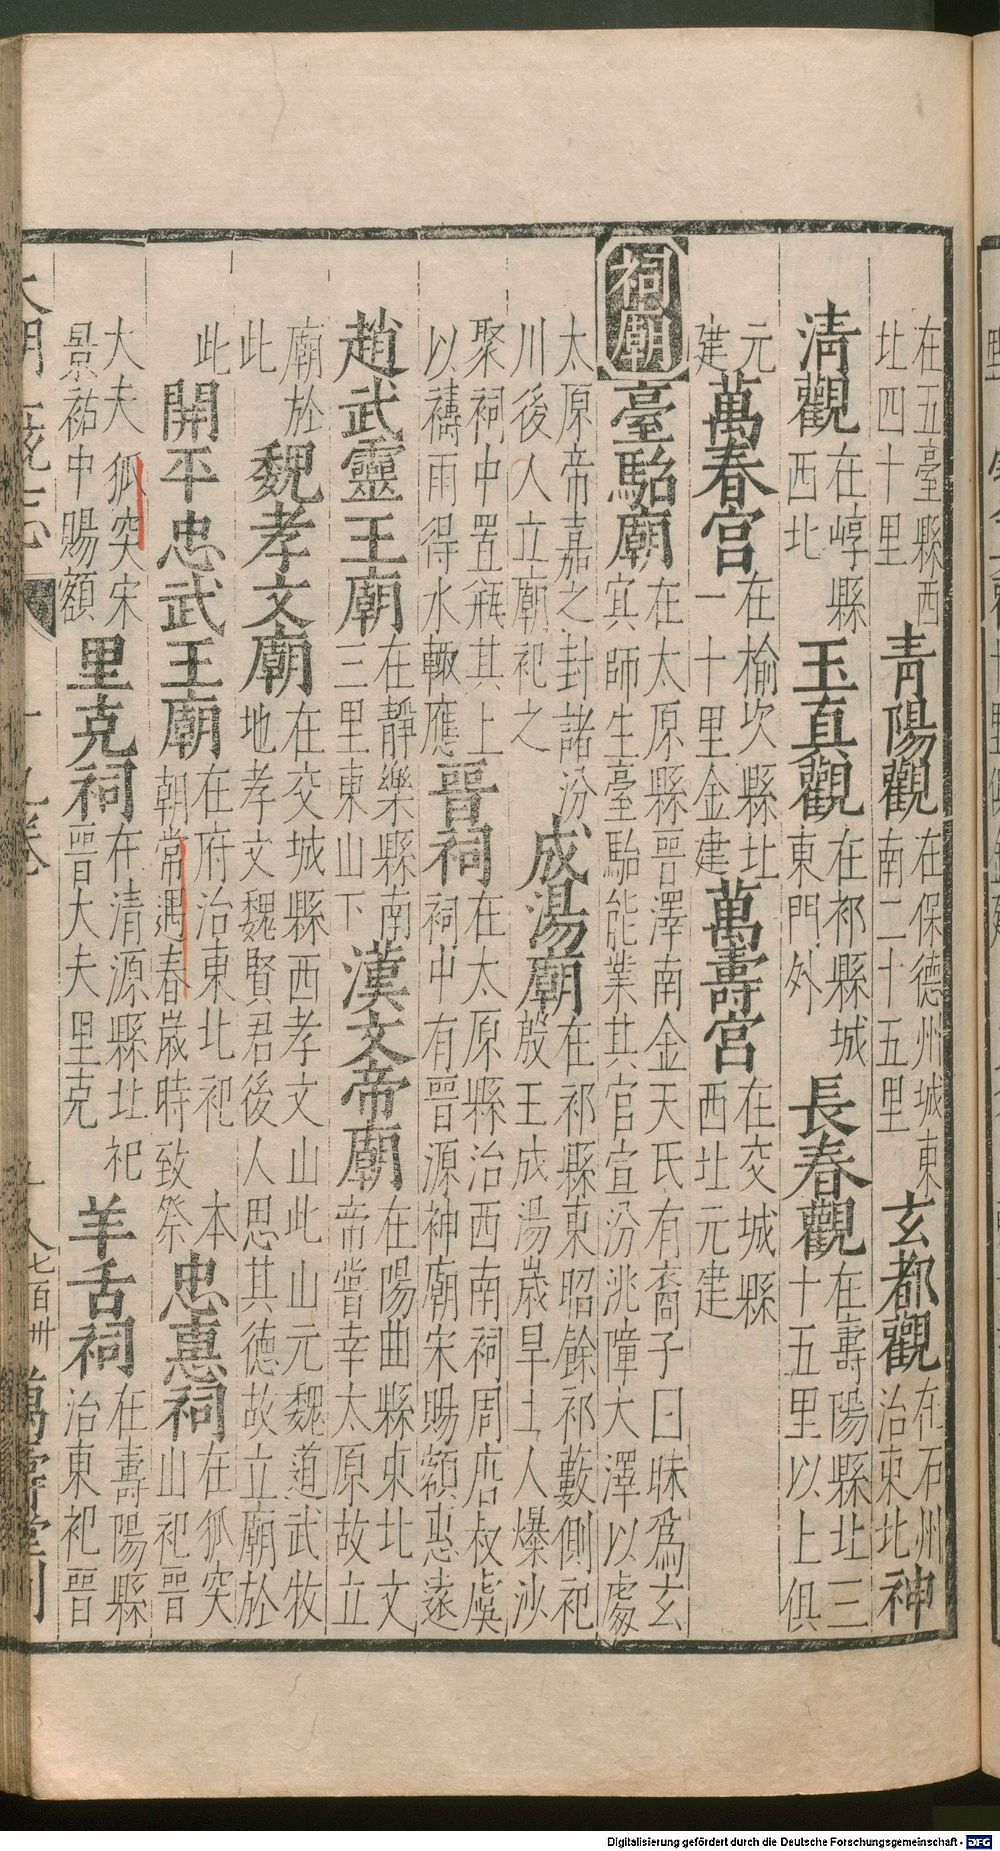 在五臺縣西北四十里 青陽觀 在保德州城東南二十五里 玄都觀 在石州治東北 神
清觀 在崞縣西北 玉真觀 在祁縣城東門外 長春觀 在壽陽縣北三十五里以上俱
元建 萬春宮 在榆次縣北一十里金建 萬壽宮 在交城縣西北元建
祠廟 臺駘廟 在太原縣晉澤南金天氏有裔子曰昧爲玄冥師生臺駘能業其官宣汾洮障大澤以處
太原帝嘉之封諸汾川後人立廟祀之 成湯廟 在祁縣東昭餘祁藪側祀殷王成湯歲旱土人爆沙
聚祠中置瓶其上以禱雨得水輙應 晉祠 在太原縣治西南祠周唐叔虞祠中有晉源神廟宋賜額惠遠
趙武靈王廟 在靜樂縣南三里東山下 漢文帝廟 在陽曲縣東北文帝嘗幸太原故立
廟於此 魏孝文廟 在交城縣西孝文山此山元魏道武牧地孝文魏賢君後人思其德故立廟於
此 開平忠武王廟 在府治東北祀本朝常遇春歲時致祭 忠惠祠 在狐突山祀晉
大夫狐突宋景祐中賜額 里克祠 在清源縣北祀晉大夫里克 羊舌祠 在壽陽縣治東祀晉
大明一統志 十九卷 七百卅 萬壽堂刊
Digitalisierung gefördert durch die Deutsche Forschungsgemeinschaft - DFG